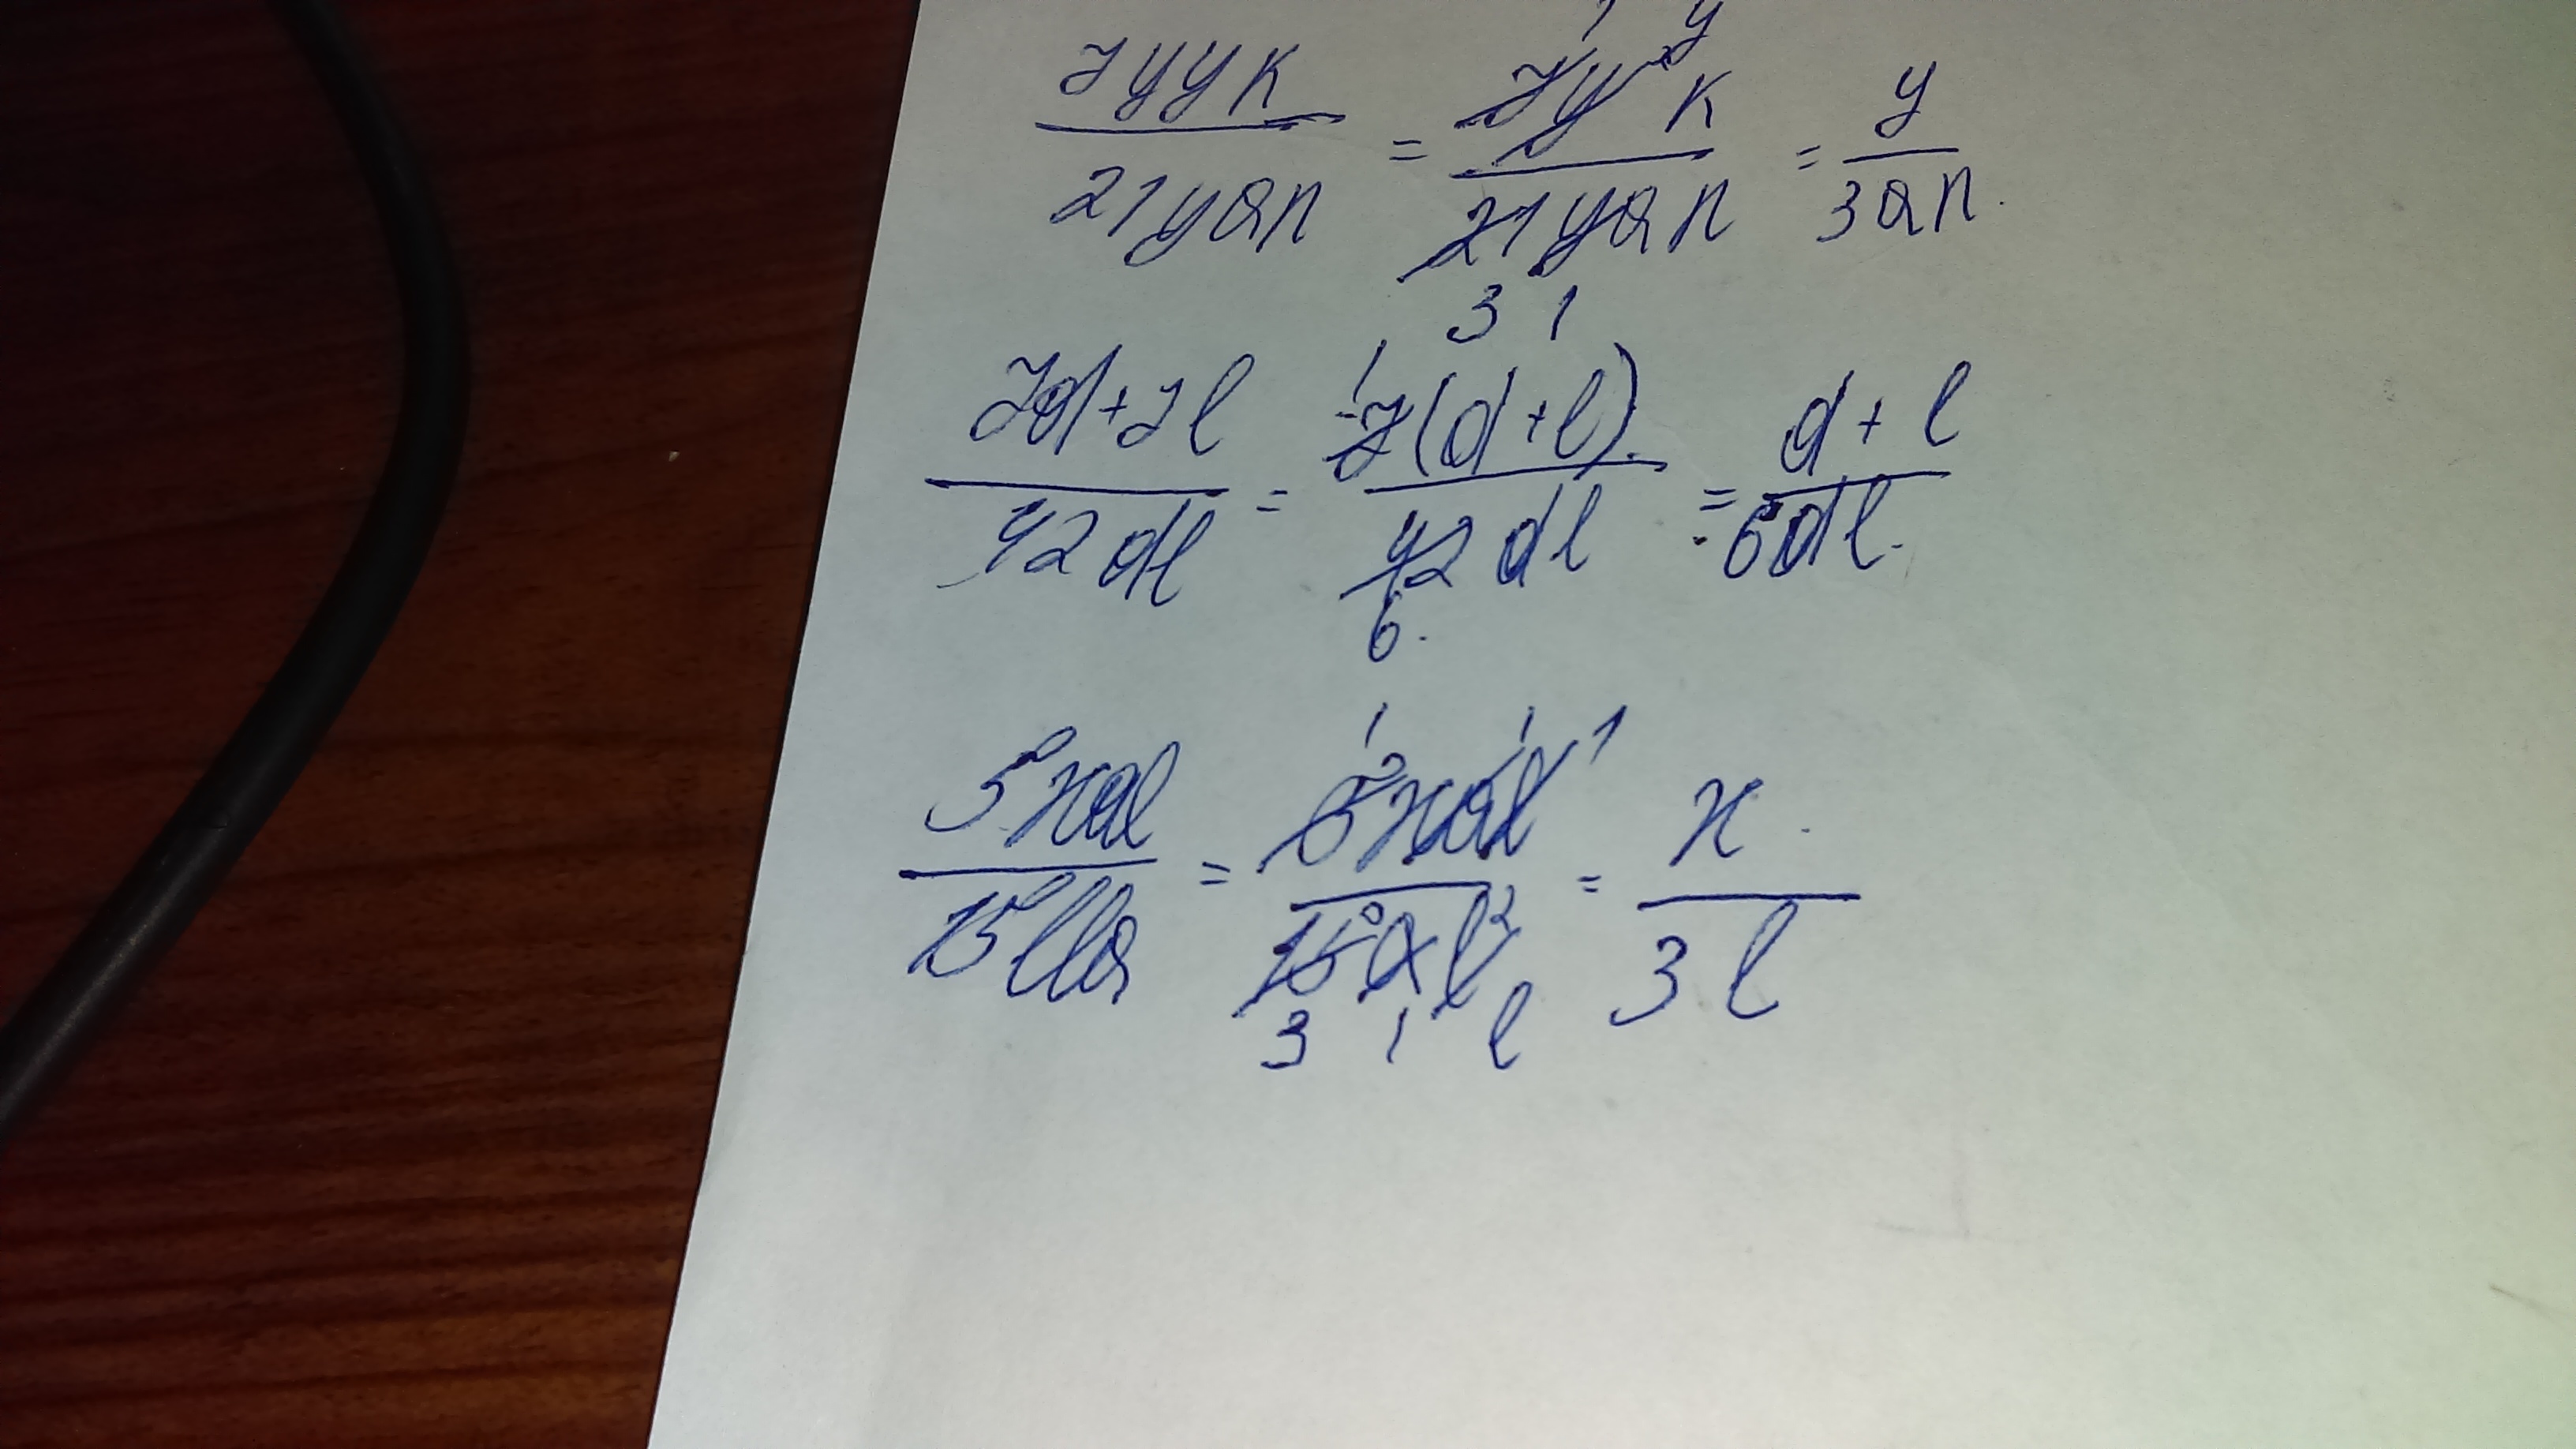 7yyk/21yan = 7y²k/21yan = y/3an
1 y
3 1
7d+7l/42dl = 7(d+l)/42dl = d+l/6dl
1
6
5xal/15lla = 5xal/15al² = x/3l
1 1 1
3 1 l